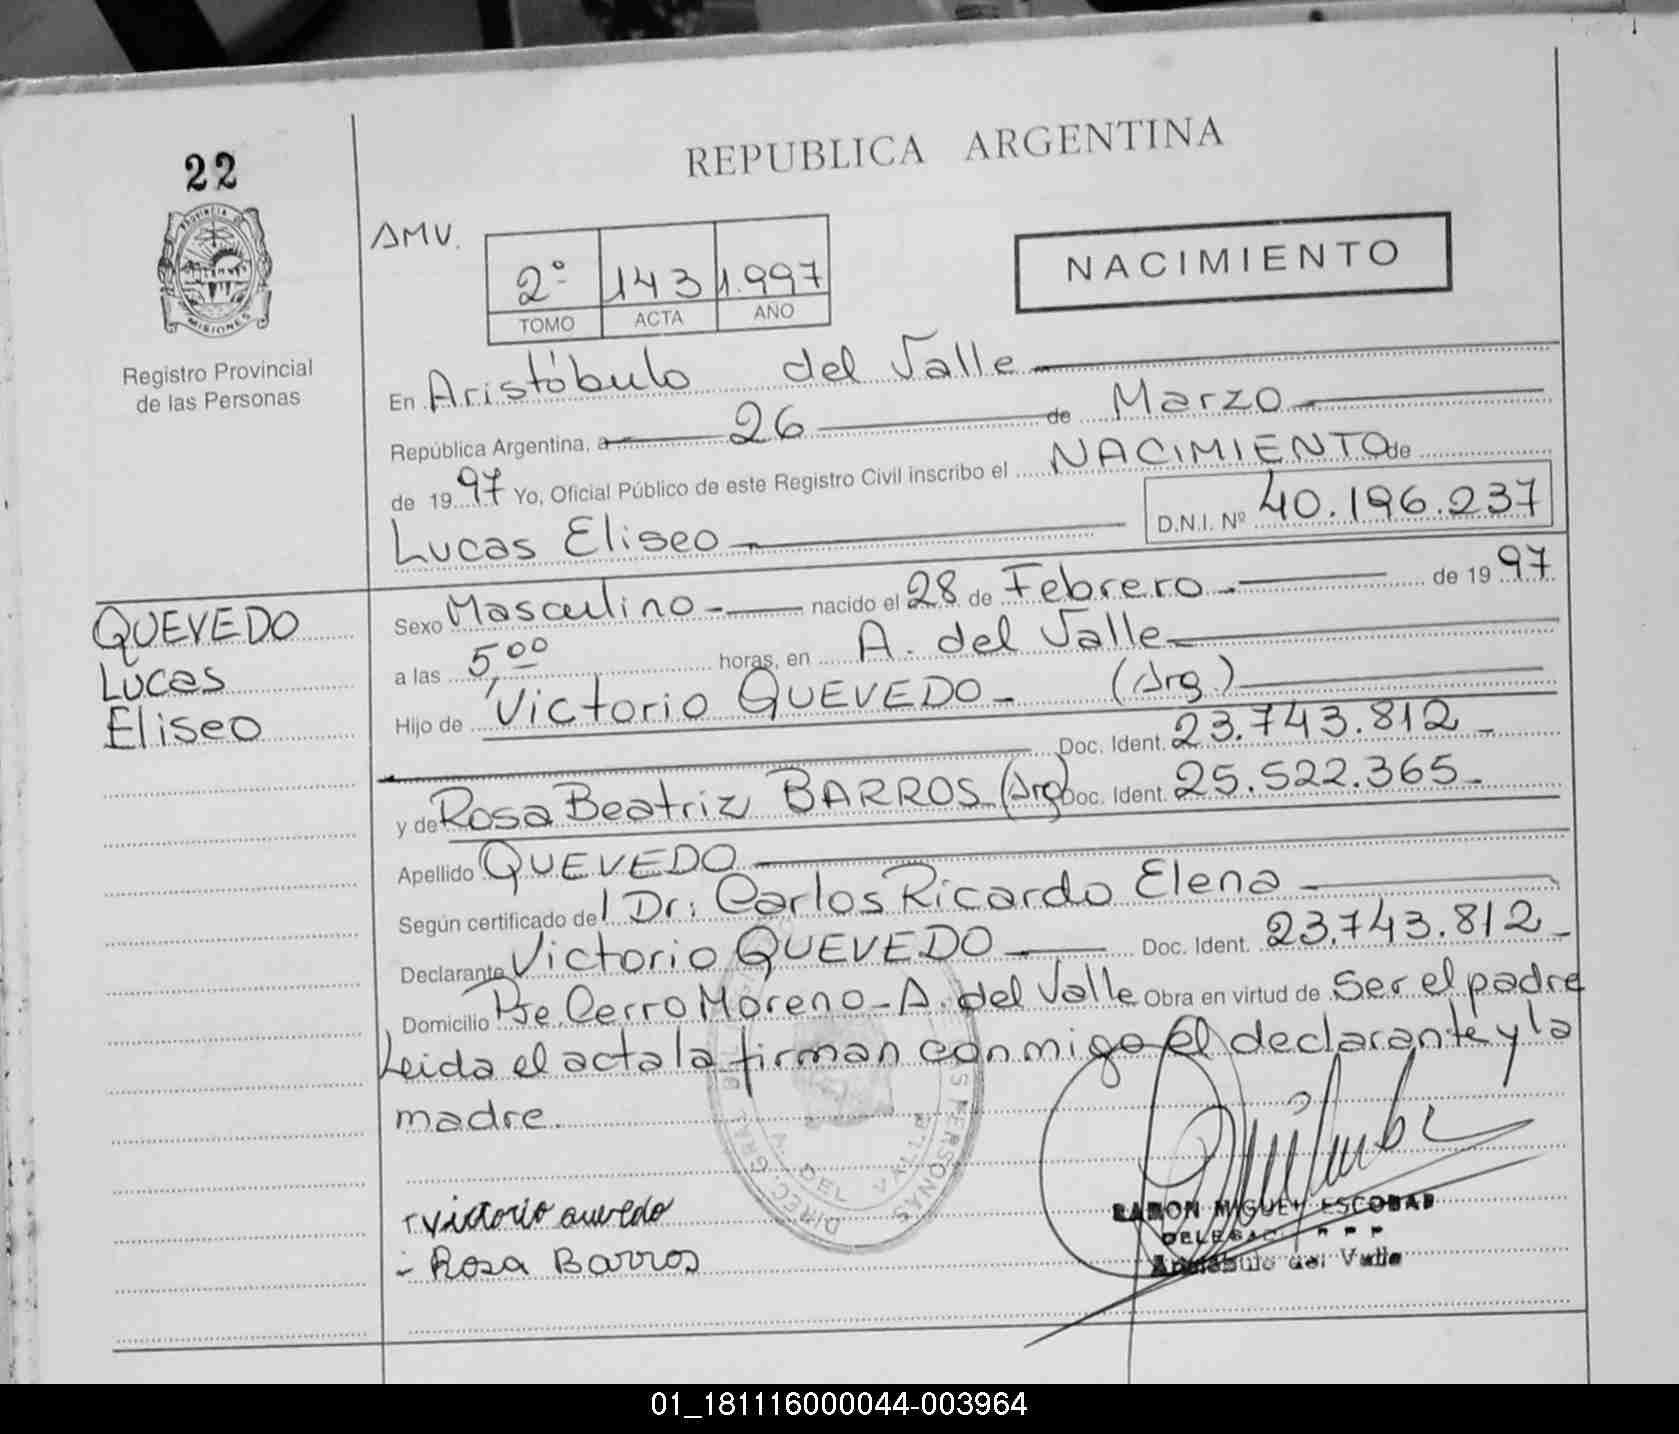 22
REPUBLICA ARGENTINA
PROVINCIA DE
MISIONES
Registro Provincial
de las Personas
AMV.
2º 143 1.997
TOMO ACTA AÑO
NACIMIENTO
En Aristóbulo del Valle
República Argentina, a 26 de Marzo
de 1997 Yo, Oficial Público de este Registro Civil inscribo el NACIMIENTO de
Lucas Eliseo D.N.I. Nº 40.196.237
QUEVEDO
Lucas
Eliseo
Sexo Masculino - nacido el 28 de Febrero - de 1997
a las 5,00 horas, en A. del Valle
Hijo de Victorio QUEVEDO - (Arg.)
Doc. Ident. 23.743.812 -
y de Rosa Beatriz BARROS (Arg) Doc. Ident. 25.522.365 -
Apellido QUEVEDO
Según certificado de l Dr: Carlos Ricardo Elena
Declarante Victorio QUEVEDO Doc. Ident. 23.743.812 -
Domicilio Pje. Cerro Moreno - A. del Valle Obra en virtud de Ser el padre
Leida el acta la firman conmigo el declarante y la
madre.
DIREC. GRAL. PERSONAS
A. DEL VALLE
victorio quevedo
- Rosa Barros
RAMON MIGUEL ESCOBAR
DELEGADO R P P
Aristóbulo del Valle
01_181116000044-003964